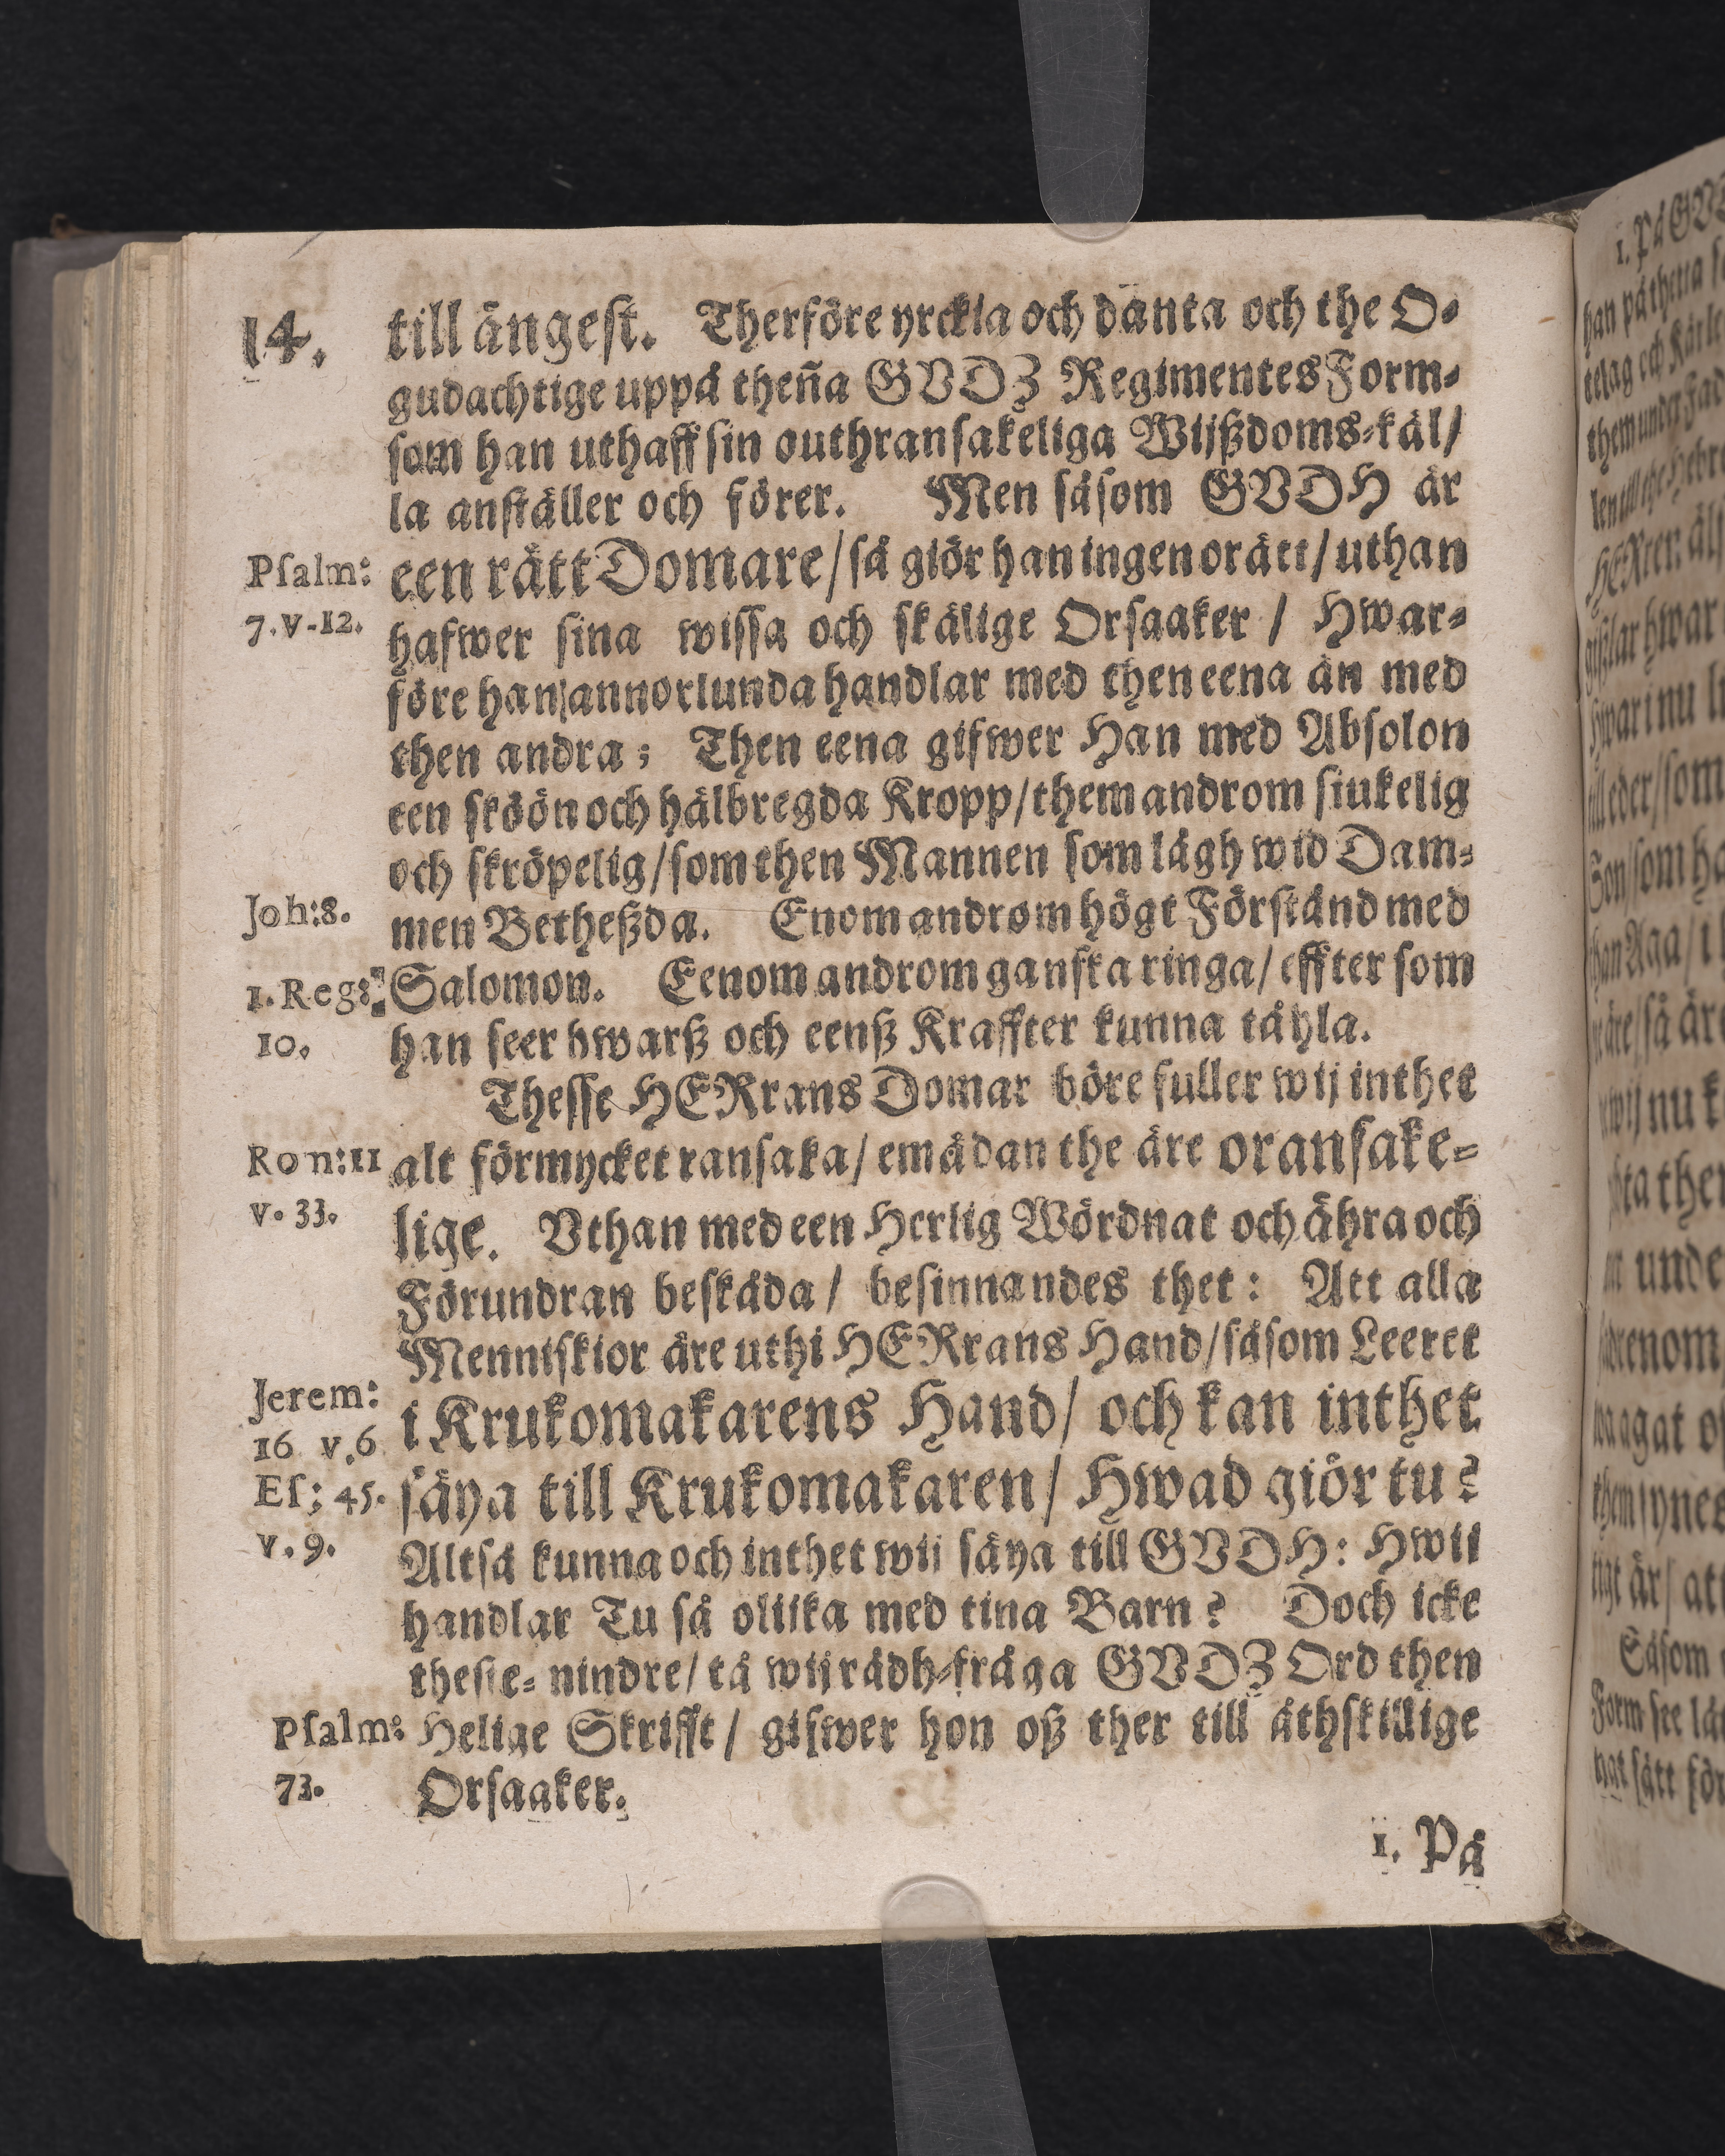 14.
till ångest. Therföre yrckia och dänta och the O-
gudachtige uppå theña GVDZ Regimentes Form-
som han uthaff sin outhransakeliga Wijßdoms-käl/
la anställer och förer. Men såsom GVDH är
Psalm: een rätt Domare/ så giör han ingen orätt/ uthan
7. v-12. hafwer sina wissa och skälige Orsaaker / Hwar-
före han annorlunda handlar med then eena än med
then andra; Then eena gifwer Han med Absolon
een sköön och hälbregda Kropp/ them androm siukelig
och skröpelig/ som then Mannen som lågh wid Dam-
Joh:8. men Betheßda. Enom androm högt Förstånd med
1. Reg: Salomon. Eenom androm ganska ringa/ effter som
10. han seer hwarß och eenß Kraffter kunna tåhla.
Thesse HERrans Domar böre fuller wij inthet
Ron:11 alt förmycket ransaka/ emådan the äre oransake-
v. 33. lige. Vthan med een Herlig Wördnat och ähra och
Förundran beskåda/ besinnandes thet: Att alla
Menniskior äre uthi HERrans Hand/ såsom Leeret
Jerem: i Krukomakarens Hand/ och kan inthet
16 v.6
Es; 45. säya till Krukomakaren/ Hwad giör tu?
v. 9. Altså kunna och inthet wij säya till GVDH: Hwij
handlar Tu så olijka med tina Barn? Doch icke
thesie- nindre/ tå wij rådh-fråga GVDZ Ord then
Psalm: Helige Skrifft/ gifwer hon oß ther till åthskillige
73. Orsaaker.
1. På